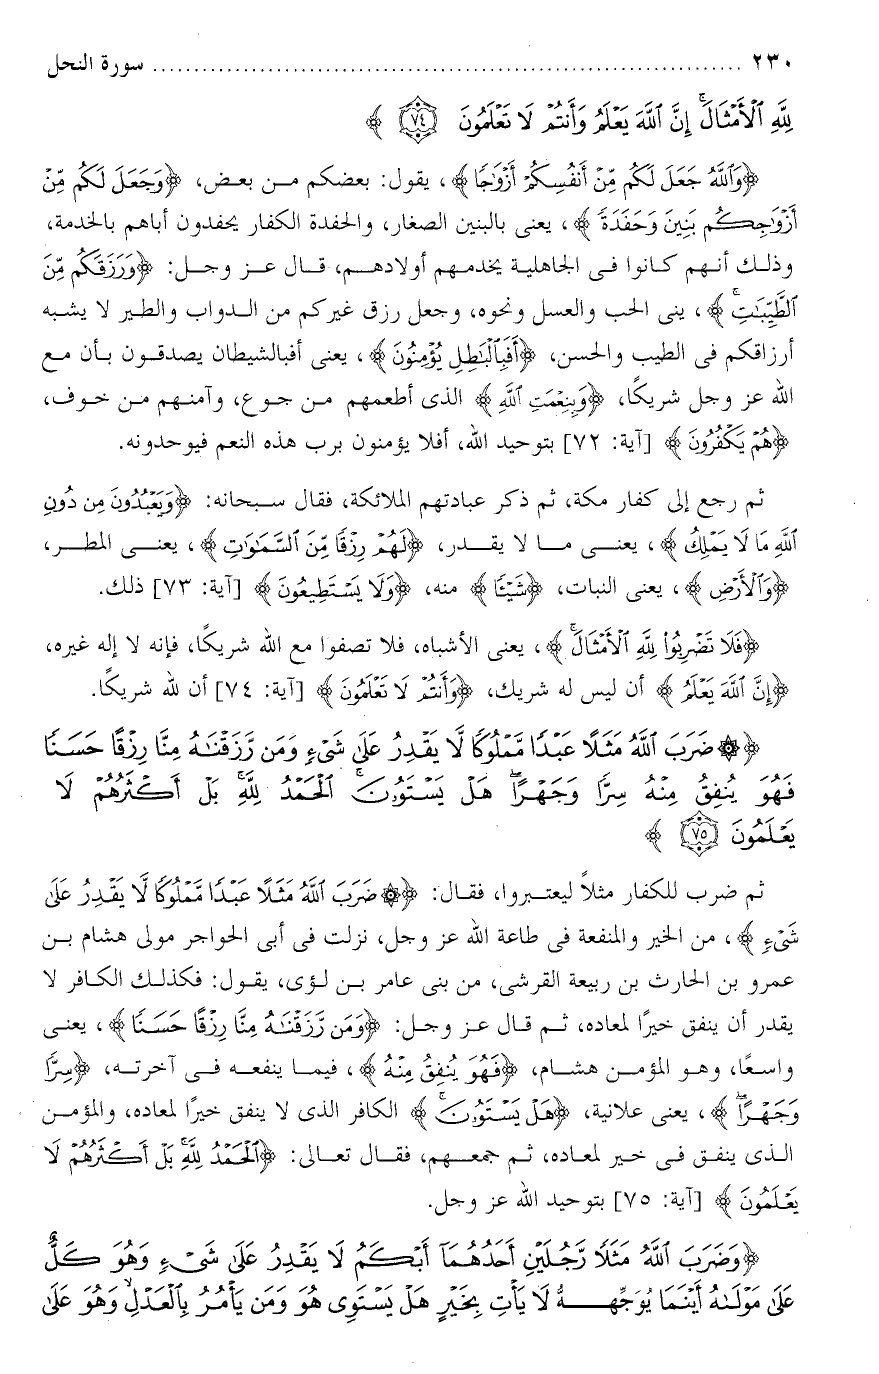 ٢٣٠ ........................................................................ سورة النحل
لِلَّهِ ٱلْأَمْثَالَ ۚ إِنَّ ٱللَّهَ يَعْلَمُ وَأَنتُمْ لَا تَعْلَمُونَ ﴿٧٤﴾ ﴾
﴿وَٱللَّهُ جَعَلَ لَكُم مِّنْ أَنفُسِكُمْ أَزْوَٰجًا﴾، يقول: بعضكم من بعض، ﴿وَجَعَلَ لَكُم مِّنْ
أَزْوَٰجِكُم بَنِينَ وَحَفَدَةً﴾، يعنى بالبنين الصغار، والحفدة الكفار يحفدون أباهم بالخدمة،
وذلك أنهم كانوا فى الجاهلية يخدمهم أولادهم، قال عز وجل: ﴿وَرَزَقَكُم مِّنَ
ٱلطَّيِّبَٰتِ ۚ﴾، ينى الحب والعسل ونحوه، وجعل رزق غيركم من الدواب والطير لا يشبه
أرزاقكم فى الطيب والحسن، ﴿أَفَبِٱلْبَٰطِلِ يُؤْمِنُونَ﴾، يعنى أفبالشيطان يصدقون بأن مع
الله عز وجل شريكًا، ﴿وَبِنِعْمَتِ ٱللَّهِ﴾ الذى أطعمهم من جوع، وآمنهم من خوف،
﴿هُمْ يَكْفُرُونَ﴾ [آية: ٧٢] بتوحيد الله، أفلا يؤمنون برب هذه النعم فيوحدونه.
ثم رجع إلى كفار مكة، ثم ذكر عبادتهم الملائكة، فقال سبحانه: ﴿وَيَعْبُدُونَ مِن دُونِ
ٱللَّهِ مَا لَا يَمْلِكُ﴾، يعنى ما لا يقدر، ﴿لَهُمْ رِزْقًا مِّنَ ٱلسَّمَٰوَٰتِ﴾، يعنى المطر،
﴿وَٱلْأَرْضِ﴾، يعنى النبات، ﴿شَيْـًٔا﴾ منه، ﴿وَلَا يَسْتَطِيعُونَ﴾ [آية: ٧٣] ذلك.
﴿فَلَا تَضْرِبُوا۟ لِلَّهِ ٱلْأَمْثَالَ ۚ﴾، يعنى الأشباه، فلا تصفوا مع الله شريكًا، فإنه لا إله غيره،
﴿إِنَّ ٱللَّهَ يَعْلَمُ﴾ أن ليس له شريك، ﴿وَأَنتُمْ لَا تَعْلَمُونَ﴾ [آية: ٧٤] أن لله شريكًا.
﴿۞ ضَرَبَ ٱللَّهُ مَثَلًا عَبْدًا مَّمْلُوكًا لَّا يَقْدِرُ عَلَىٰ شَىْءٍ وَمَن رَّزَقْنَٰهُ مِنَّا رِزْقًا حَسَنًا
فَهُوَ يُنفِقُ مِنْهُ سِرًّا وَجَهْرًا ۖ هَلْ يَسْتَوُۥنَ ۚ ٱلْحَمْدُ لِلَّهِ ۚ بَلْ أَكْثَرُهُمْ لَا
يَعْلَمُونَ ﴿٧٥﴾ ﴾
ثم ضرب للكفار مثلاً ليعتبروا، فقال: ﴿۞ ضَرَبَ ٱللَّهُ مَثَلًا عَبْدًا مَّمْلُوكًا لَّا يَقْدِرُ عَلَىٰ
شَىْءٍ﴾، من الخير والمنفعة فى طاعة الله عز وجل، نزلت فى أبى الحواجر مولى هشام بن
عمرو بن الحارث بن ربيعة القرشى، من بنى عامر بن لؤى، يقول: فكذلك الكافر لا
يقدر أن ينفق خيرًا لمعاده، ثم قال عز وجل: ﴿وَمَن رَّزَقْنَٰهُ مِنَّا رِزْقًا حَسَنًا﴾، يعنى
واسعًا، وهو المؤمن هشام، ﴿فَهُوَ يُنفِقُ مِنْهُ﴾، فيما ينفعه فى آخرته، ﴿سِرًّا
وَجَهْرًا ۖ﴾، يعنى علانية، ﴿هَلْ يَسْتَوُۥنَ ۚ﴾ الكافر الذى لا ينفق خيرًا لمعاده، والمؤمن
الذى ينفق فى خير لمعاده، ثم جمعهم، فقال تعالى: ﴿ٱلْحَمْدُ لِلَّهِ ۚ بَلْ أَكْثَرُهُمْ لَا
يَعْلَمُونَ﴾ [آية: ٧٥] بتوحيد الله عز وجل.
﴿وَضَرَبَ ٱللَّهُ مَثَلًا رَّجُلَيْنِ أَحَدُهُمَآ أَبْكَمُ لَا يَقْدِرُ عَلَىٰ شَىْءٍ وَهُوَ كَلٌّ
عَلَىٰ مَوْلَىٰهُ أَيْنَمَا يُوَجِّههُّ لَا يَأْتِ بِخَيْرٍ هَلْ يَسْتَوِى هُوَ وَمَن يَأْمُرُ بِٱلْعَدْلِ ۙ وَهُوَ عَلَىٰ